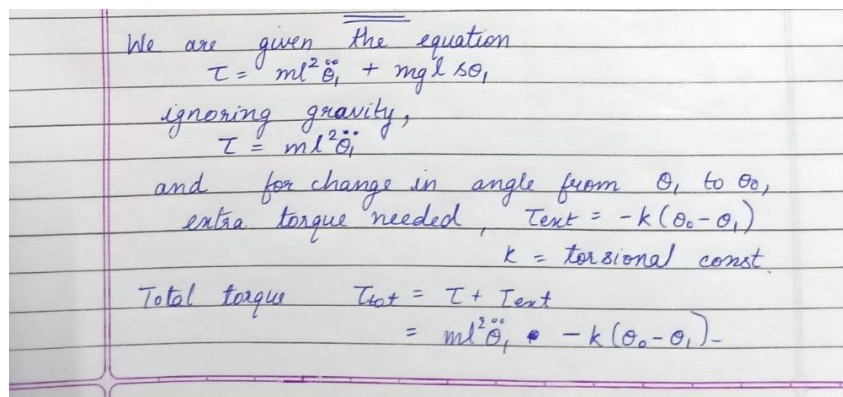 We are given the equation
τ = ml²θ̈₁ + mgl sθ₁
ignoring gravity,
τ = ml²θ̈₁
and for change in angle from θ₁ to θ₀,
extra torque needed, τext = -k(θ₀-θ₁)
k = torsional const.
Total torque τtot = τ + τext
= ml²θ̈₁ - k(θ₀-θ₁)-